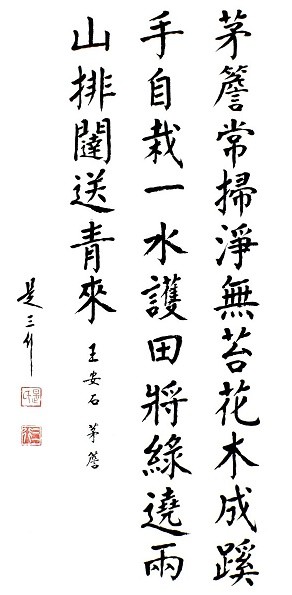 茅簷常掃淨無苔花木成蹊
手自栽一水護田將綠遶兩
山排闥送青來
王安石 茅簷
是三